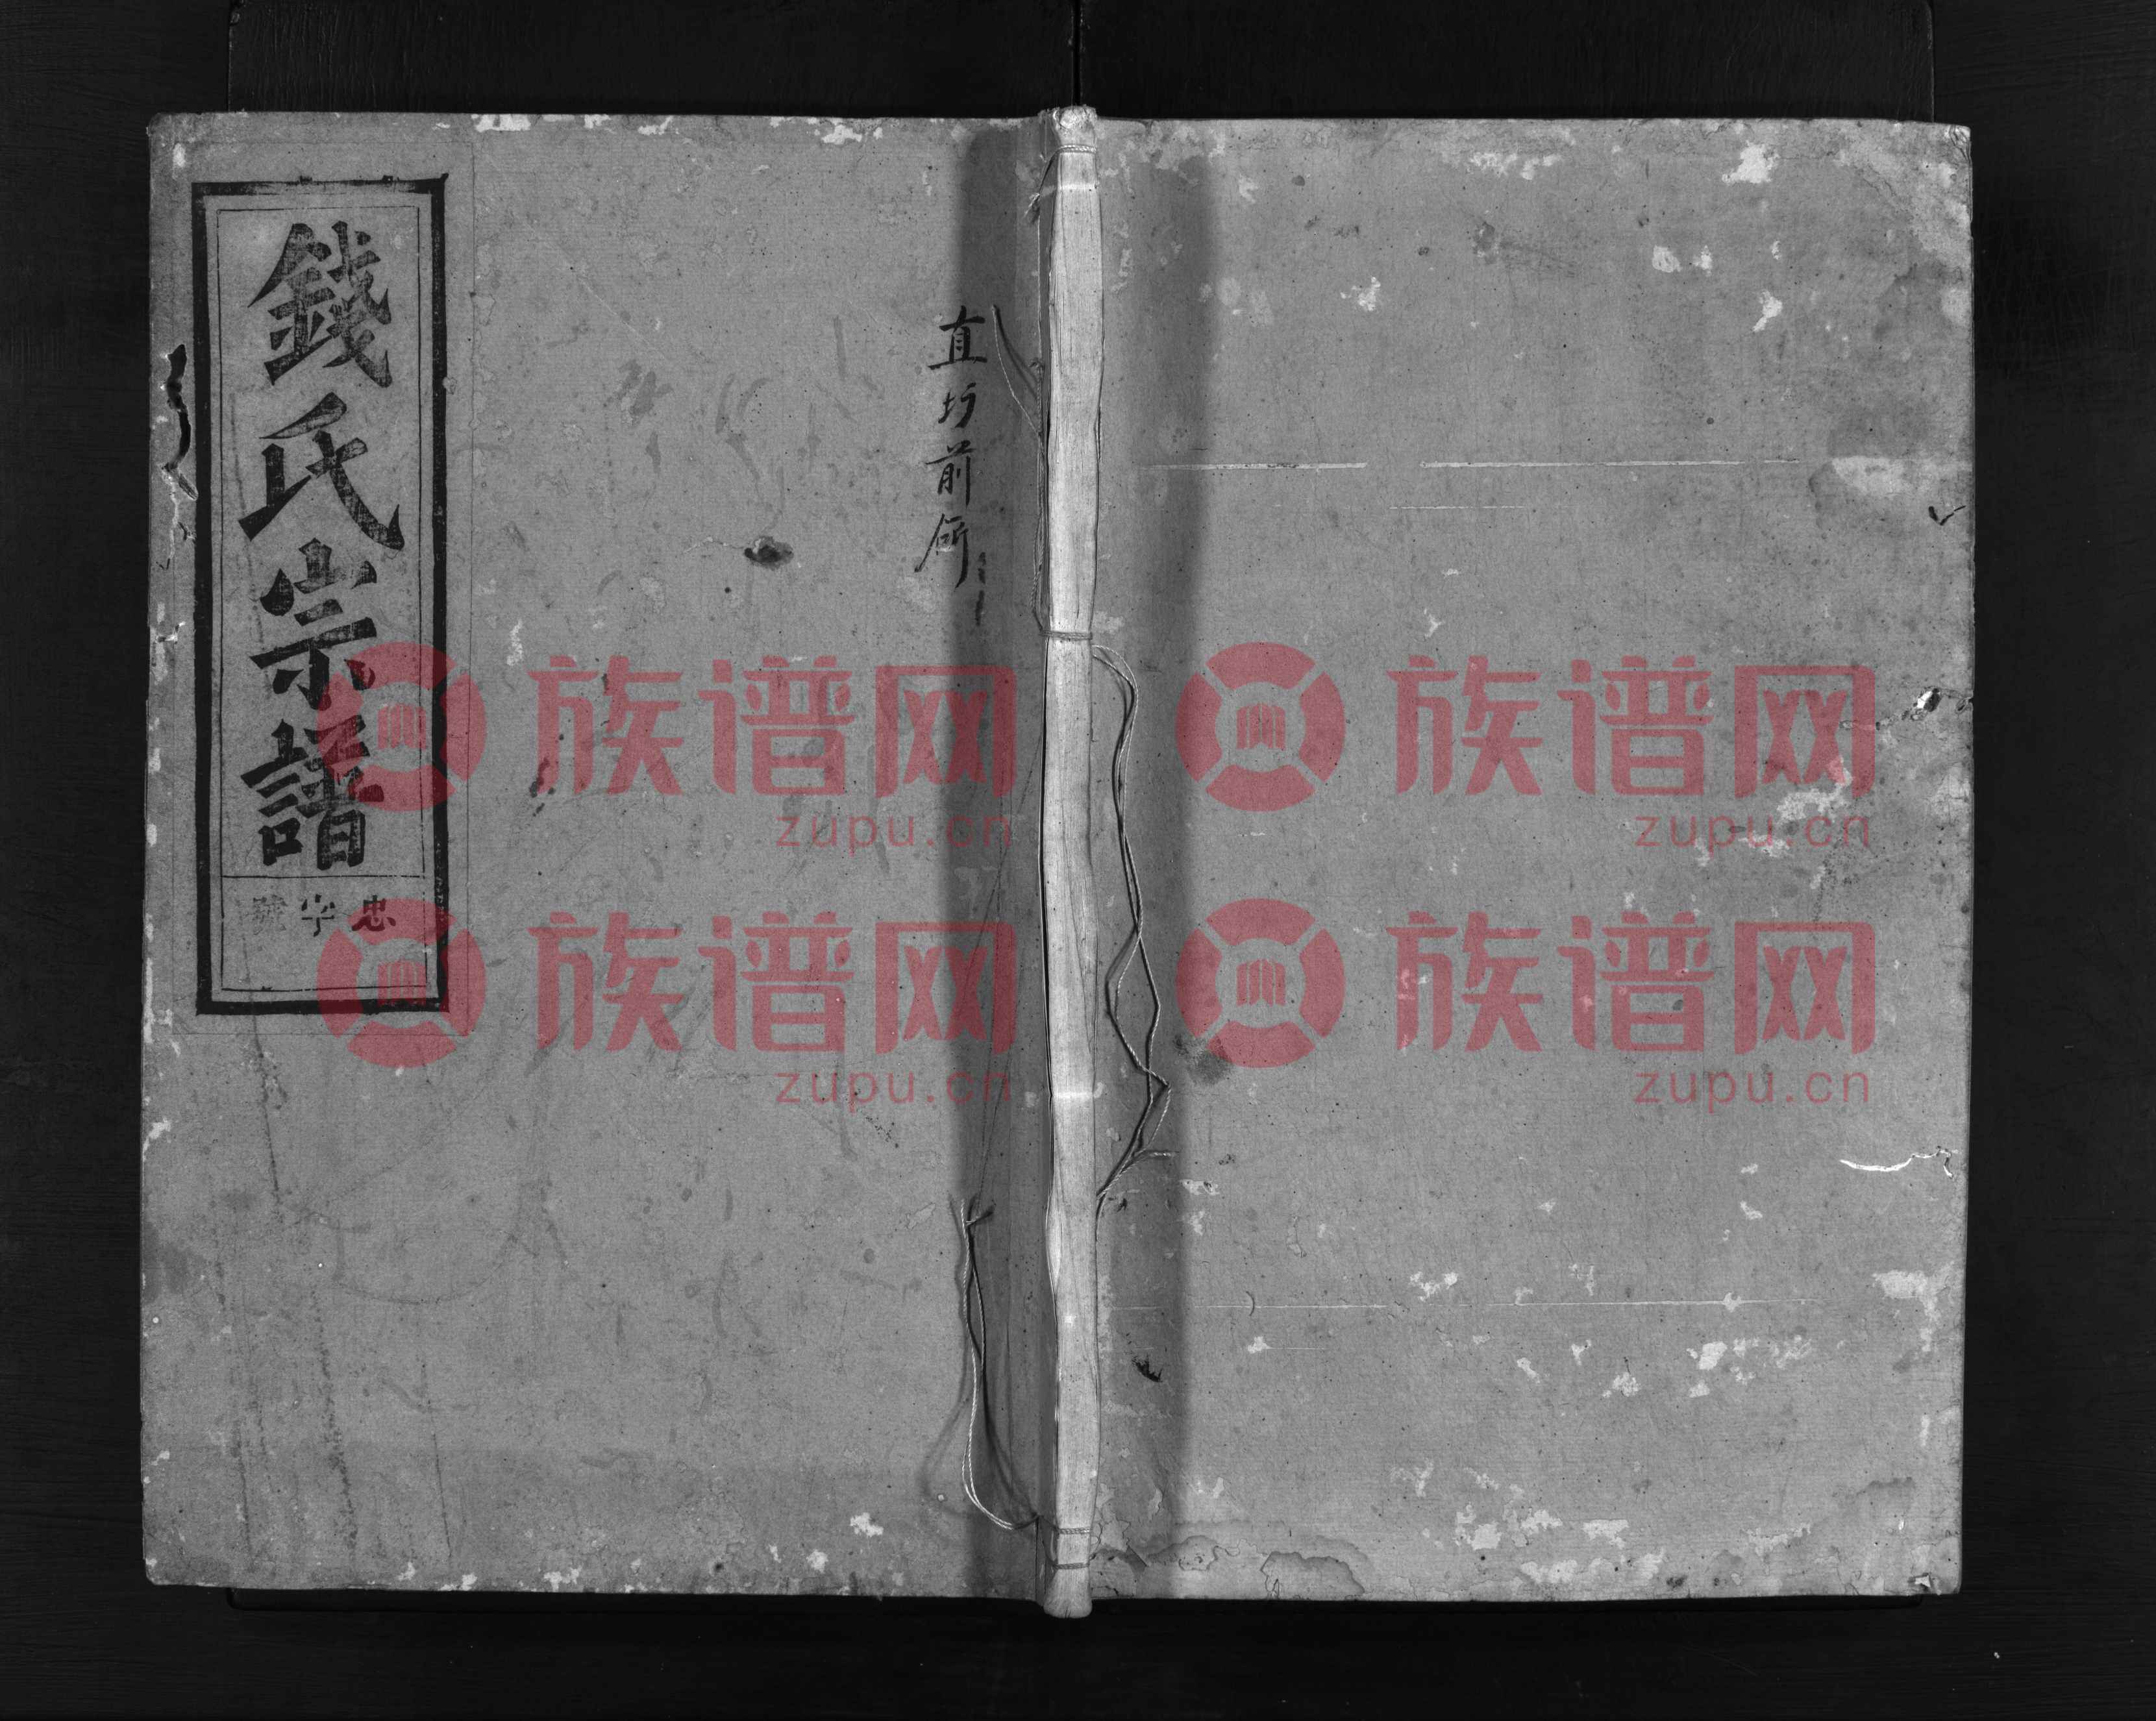 錢氏宗譜
忠字號
直坊前所
族谱网
zupu.cn
族谱网
zupu.cn
族谱网
zupu.cn
族谱网
zupu.cn